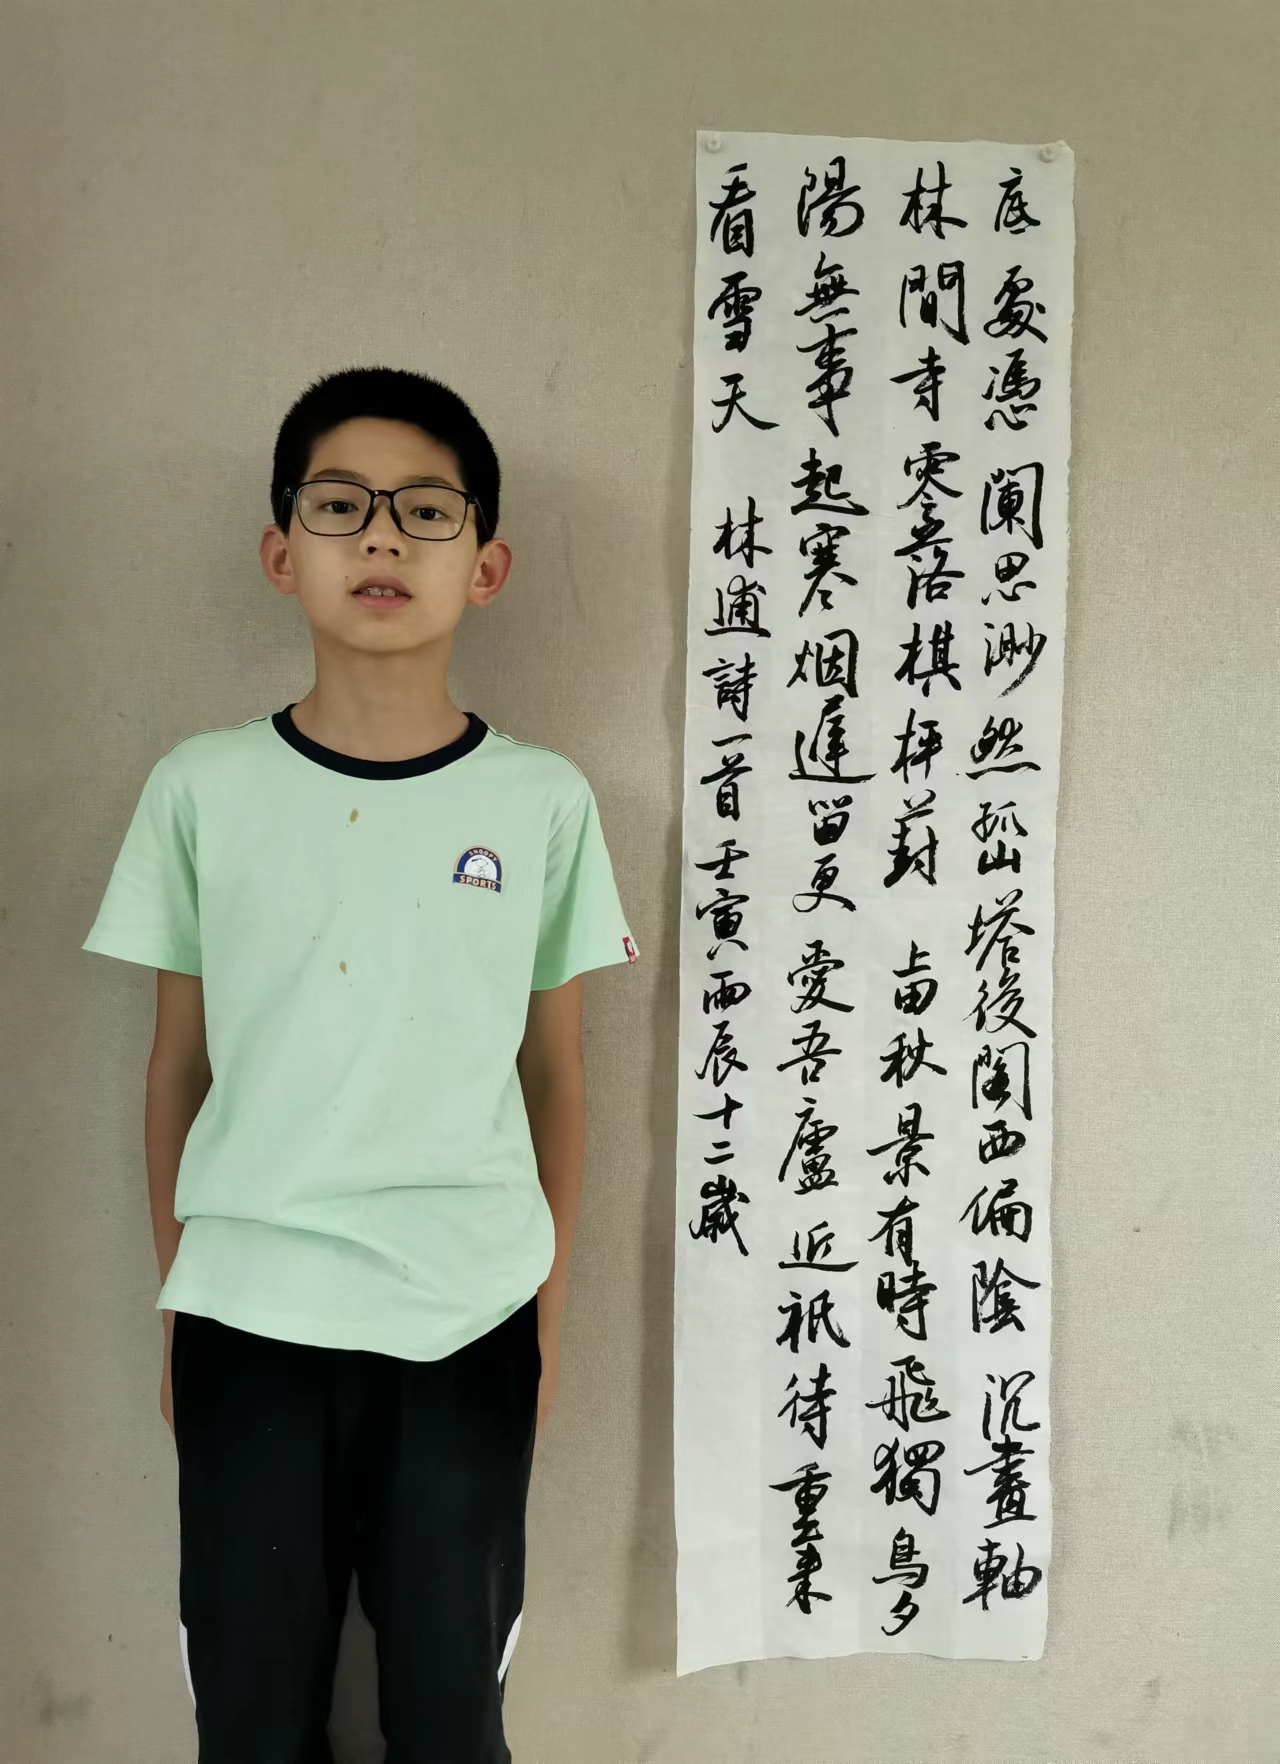 底處憑闌思渺然孤山塔後閣西偏陰沉畫軸
林間寺零落棋枰葑上田秋景有時飛獨鳥夕
陽無事起寒烟遲留更愛吾廬近祇待重來
看雪天 林逋詩一首壬寅雨辰十二歲
SNOOPY
SPORTS